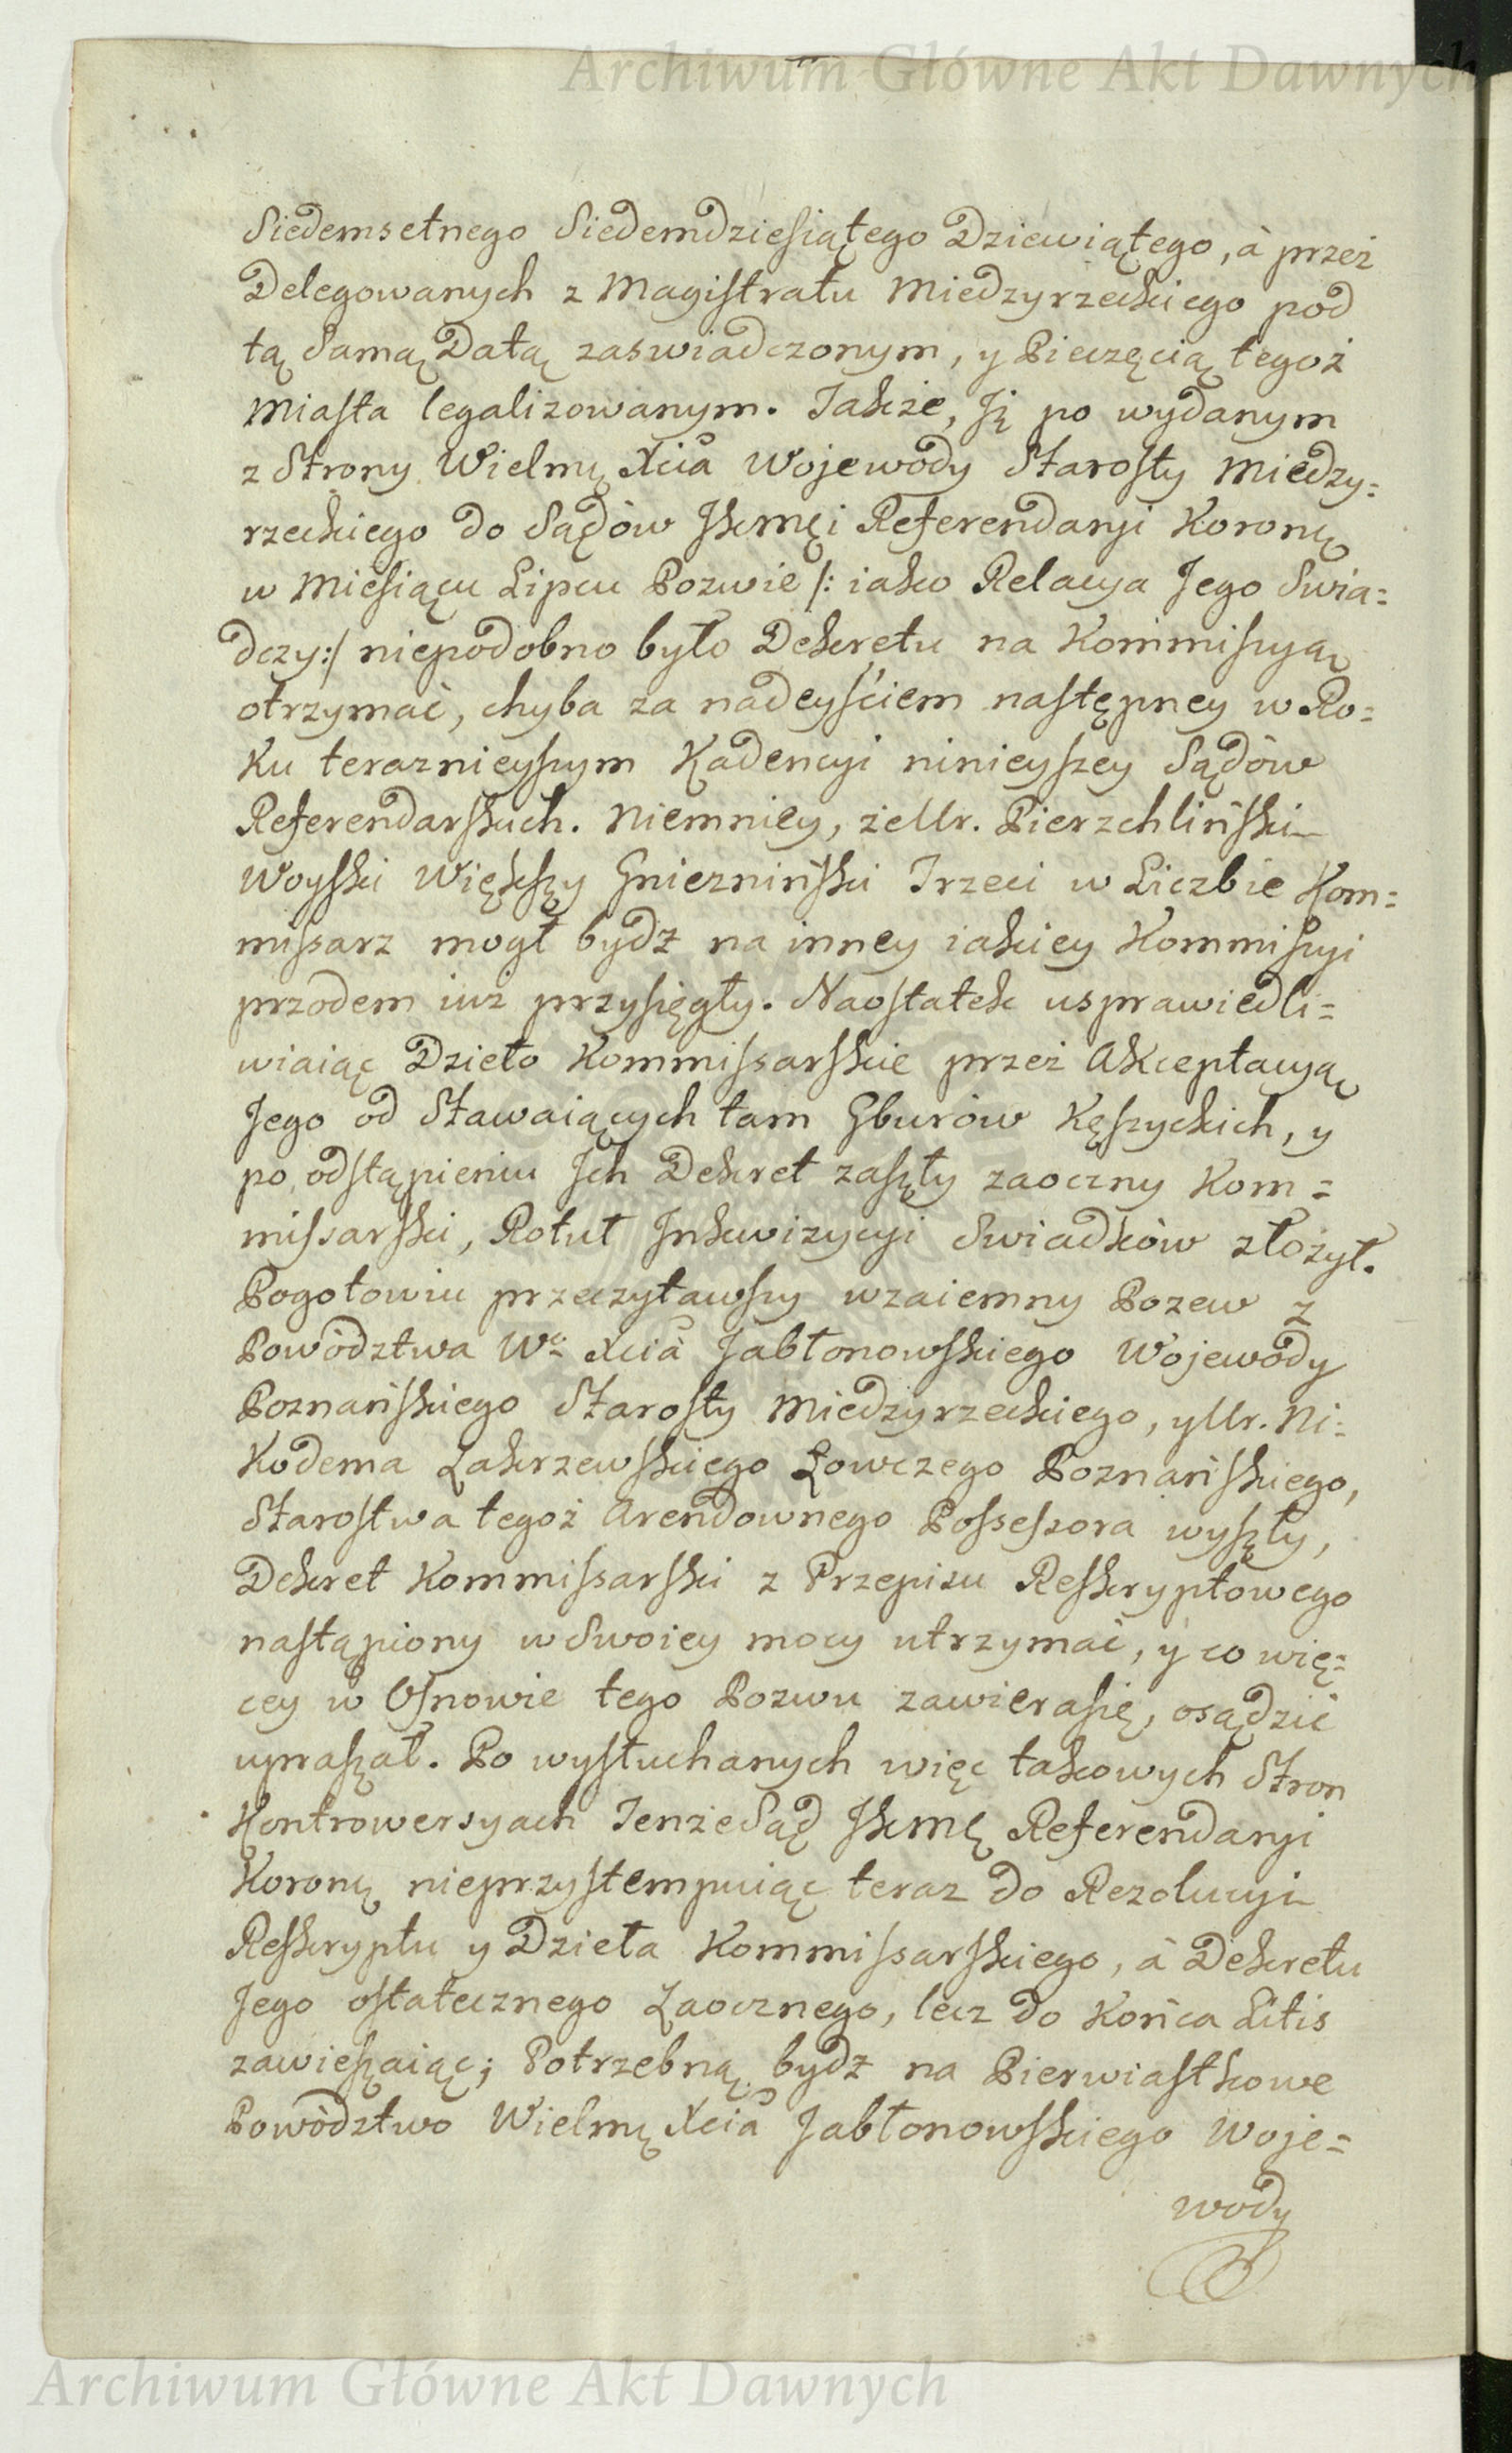 Archiwum Główne Akt Dawnych
Siedemsetnego Siedemdziesiątego Dziewiątego, à przez
Delegowanych z Magistratu Miedzyrzeckiego pod
tą Samą Datą zaswiadczonym, y Pieczęcią tegoż
Miasta legalizowanym. Także, Jż po wydanym
z Strony Wielmż Xcia Wojewody Starosty Miedzy=
rzeckiego do Sądów JKmci Referendaryi Koronż
w Miesiącu Lipcu Pozwie /: iako Relacya Jego Swia=
dczy:/ niepodobno było Dekretu na Kommissyą
otrzymać, chyba za nadeyściem następney w Ro=
ku teraznieyszym Kadencyi ninieyszey Sądów
Referendarskich. Niemniey, że Ur. Pierzchliński
Woyski Większy Gniezniński Trzeci w Liczbie Kom=
missarz mogł bydz na inney iakiey Kommissyi
przodem iuz przysięgły. Naostatek usprawiedli=
wiaiąc Dzieło Kommissarskie przez Akceptacyą
Jego od Stawaiących tam Gburów Kęszyckich, y
po odstąpieniu Jch Dekret zaszły zaoczny Kom=
missarski, Rotuł Jnkwizycyi Swiadków złożył.
Pogotowiu przeczytawszy wzaiemny Pozew z
Powództwa Wo Xcia Jabłonowskiego Wojewody
Poznańskiego Starosty Miedzyrzeckiego, y Ur. Ni=
kodema Zakrzewskiego Łowczego Poznańskiego,
Starostwa tegoż Arendownego Possessora wyszły,
Dekret Kommissarski z Przepisu Reskryptowego
nastąpiony w Swoiey mocy utrzymać, y co wię=
cey w Osnowie tego Pozwu zawiera się, osądzić
upraszał. Po wysłuchanych więc takowych Stron
Kontrowersyach Tenże Sąd JKmci Referendaryi
Koronż nieprzystempuiąc teraz do Rezolucyi
Reskryptu y Dzieła Kommissarskiego, à Dekretu
Jego ostatecznego Zaocznego, lecz do Końca Litis
zawieszaiąc; Potrzebną bydz na Pierwiastkowe
Powództwo Wielmż Xcia Jabłonowskiego Woje=
wody
Archiwum Główne Akt Dawnych